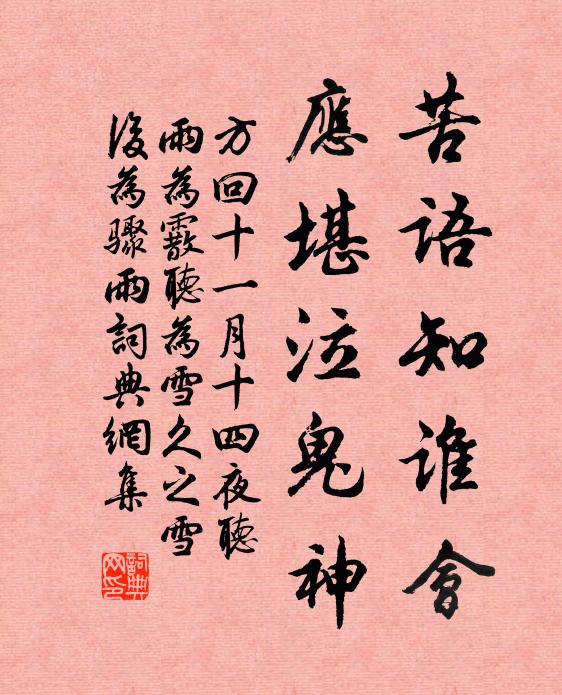 苦語知誰會
應堪泣鬼神
方回十一月十四夜聽
雨為霰聽為雪久之雪
後為驟雨詞典網集
詞典網印